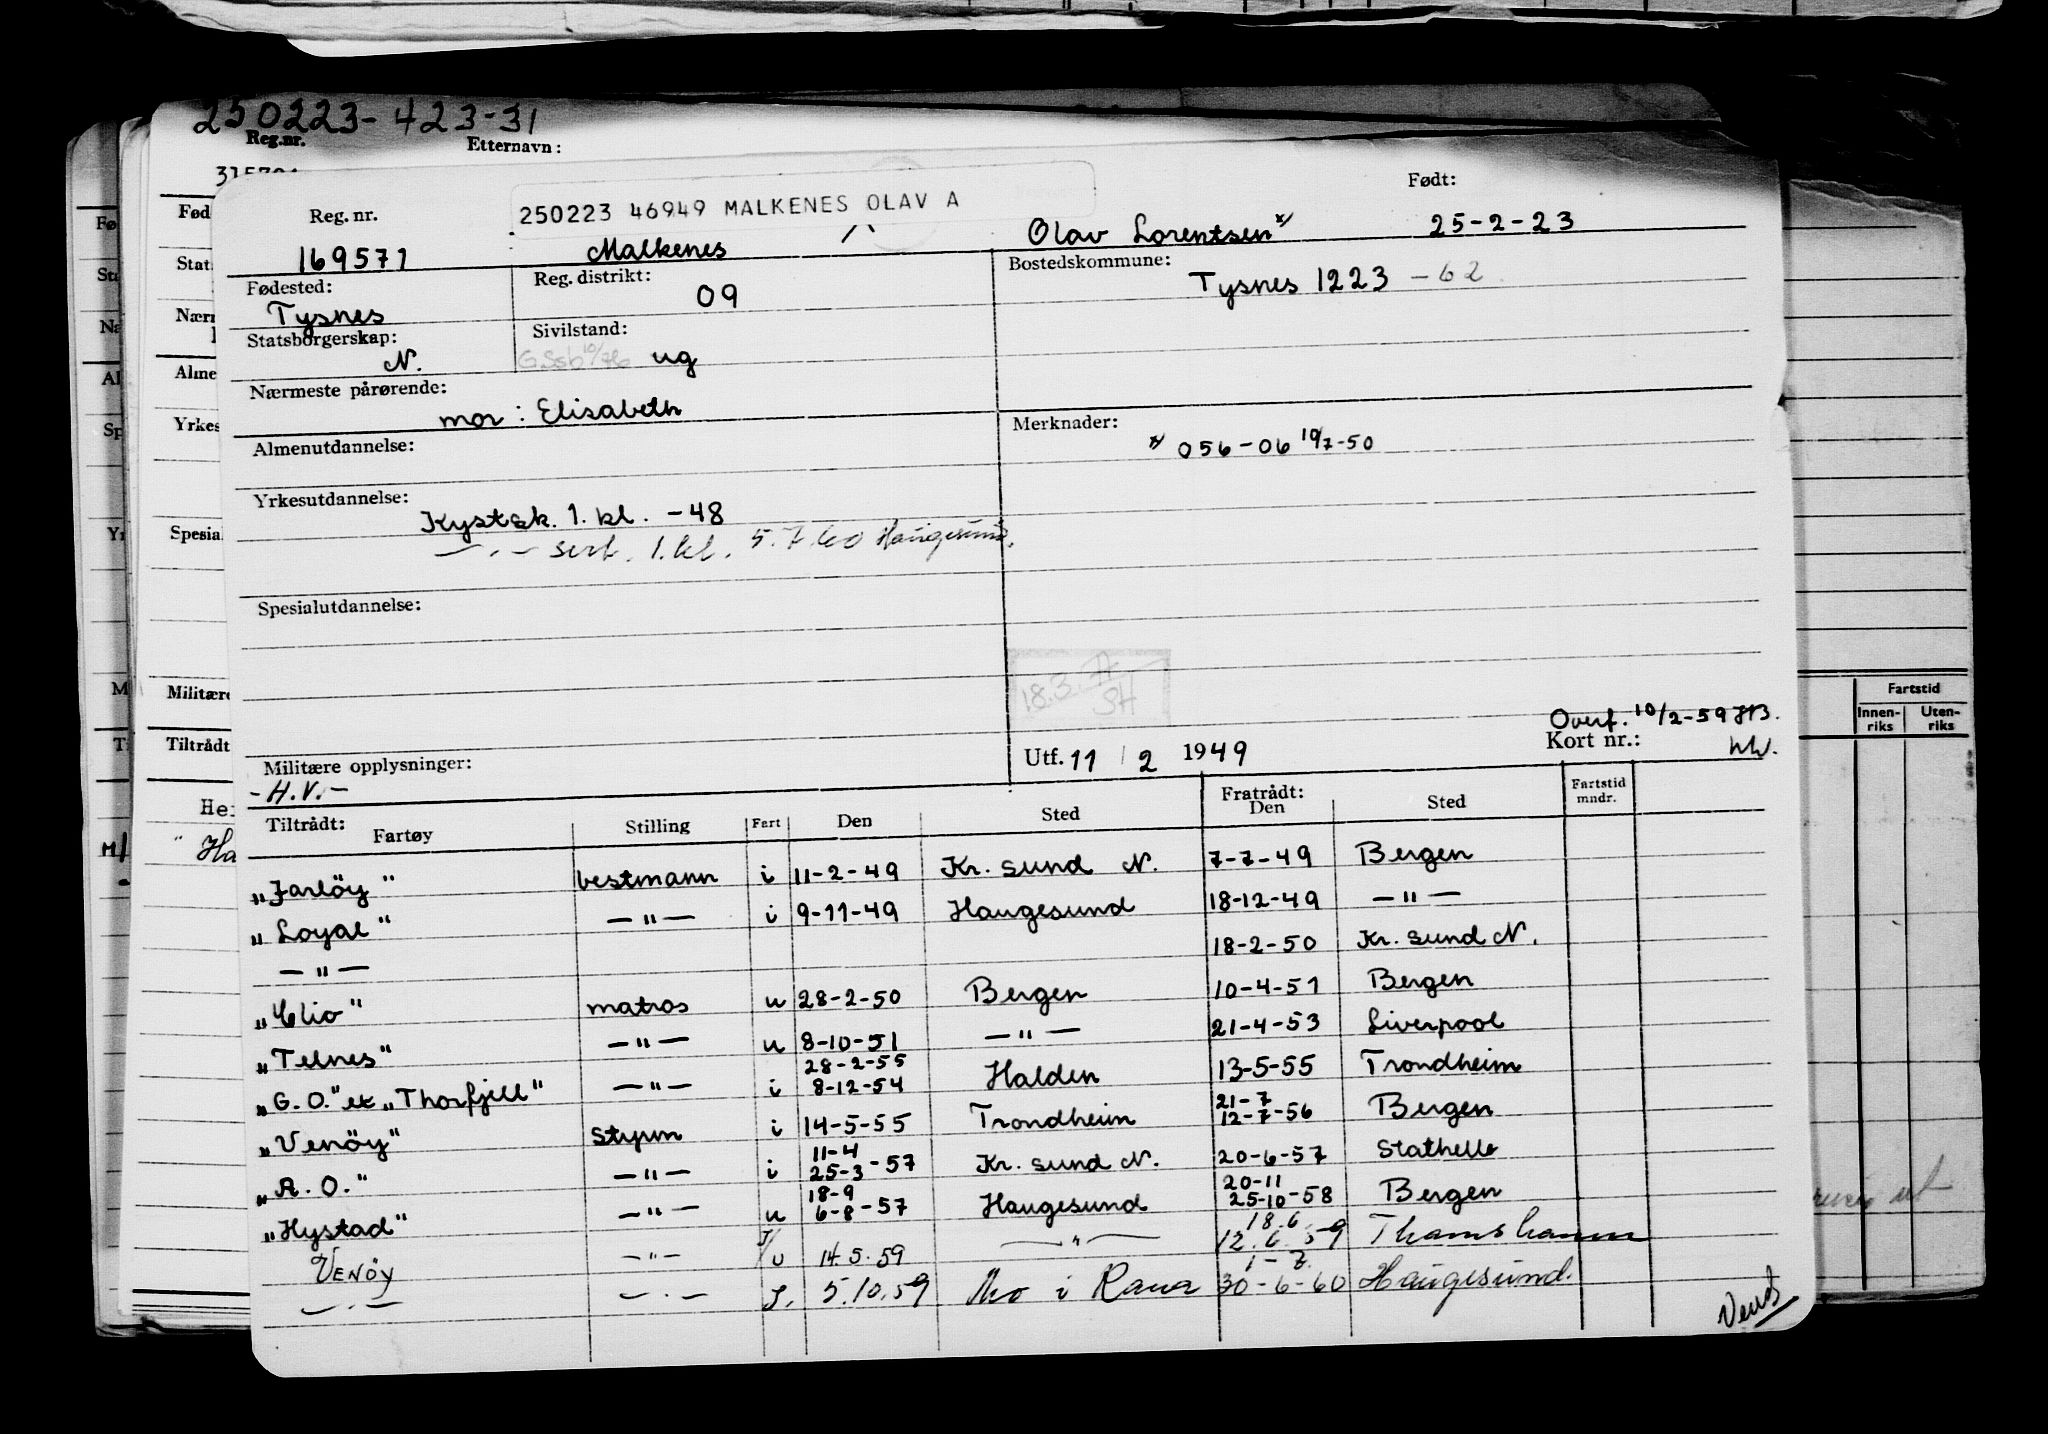 250223-423-31
Reg.nr. Etternavn:
250223 46949 MALKENES OLAV A
Født:
Reg. nr. 169571 Malkenes Olav Lorentsen x/ 25-2-23
Fødested: Tysnes Reg. distrikt: 09 Bostedskommune: Tysnes 1223 -62
Statsborgerskap: N. Sivilstand: ug
Nærmeste pårørende: mor: Elisabeth
Almenutdannelse:
Merknader: x/ 056-06 10/7-50
Yrkesutdannelse: Kystsk. 1. kl. -48
— . — sert. 1. kl. 5.7.60 Haugesund.
Spesialutdannelse:
18.3.
SH
Overf. 10/2-59 HB.
Militære opplysninger: - H.V. -
Utf. 11 / 2 1949 Kort nr.:
Tiltrådt: Fartøy Stilling Fart Den Sted Fratrådt: Den Sted Fartstid mndr.
„Jarløy" bestmann i 11-2-49 Kr. sund N. 7-7-49 Bergen
„Loyal" — " — i 9-11-49 Haugesund 18-12-49 — " —
— " — 18-2-50 Kr. sund N.
„Clio" matros u 28-2-50 Bergen 10-4-51 Bergen
„Telnes" — " — u 8-10-51 — " — 21-4-53 Liverpool
„G.O." ex „Thorfjell" — " — i 28-2-55 8-12-54 Halden 13-5-55 Trondheim
„Venöy" styrm i 14-5-55 Trondheim 21-7 12-7-56 Bergen
„R.O." — " — i 11-4 25-3-57 Kr. sund N. 20-6-57 Stathelle
„Hystad" — " — u 18-9 6-8-57 Haugesund 20-11 25-10-58 Bergen
VENÖY — " — I/U 14.5.59 — " — 18.6. 12.6.59 Thamshamn
— . — — . — I. 5.10.59 Mo i Rana 1-7. 30-6-60 Haugesund.
Vend
Fartstid
Innen-riks Uten-riks